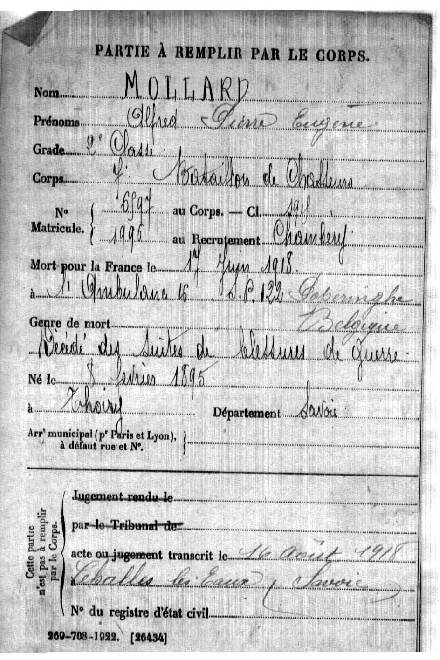 PARTIE À REMPLIR PAR LE CORPS.
Nom MOLLARD
Prénoms Alfred Pierre Eugène
Grade 2e Classe
Corps Bataillon de Chasseurs
N° Matricule.
6597 au Corps. — Cl. 1915
1996 au Recrutement Chambéry
Mort pour la France le 17 Juin 1918
à l'Ambulance 16 S.P. 122
Belgique
Genre de mort
Décédé des suites de blessures de guerre
Né le 8 février 1895
à Thoiry Département Savoie
Arrt municipal (pr Paris et Lyon), à défaut rue et N°.
Cette partie n'est pas à remplir par le Corps.
Jugement rendu le
par le Tribunal de
acte ou jugement transcrit le 16 août 1918
Challes les Eaux (Savoie)
N° du registre d'état civil
269-708-1922. [26434]